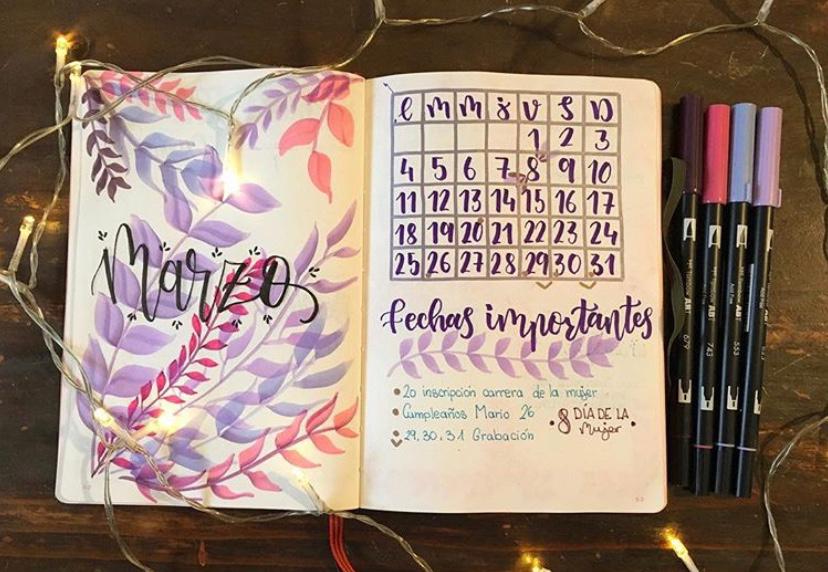 Marzo
L M M J V S D
1 2 3
4 5 6 7 8 9 10
11 12 13 14 15 16 17
18 19 20 21 22 23 24
25 26 27 28 29 30 31
fechas importantes
20 inscripcion carrera de la mujer
Cumpleaños Mario 26
29, 30, 31 Grabación
8 DÍA DE LA
Mujer
679
743
553
ABT
ABT
ABT